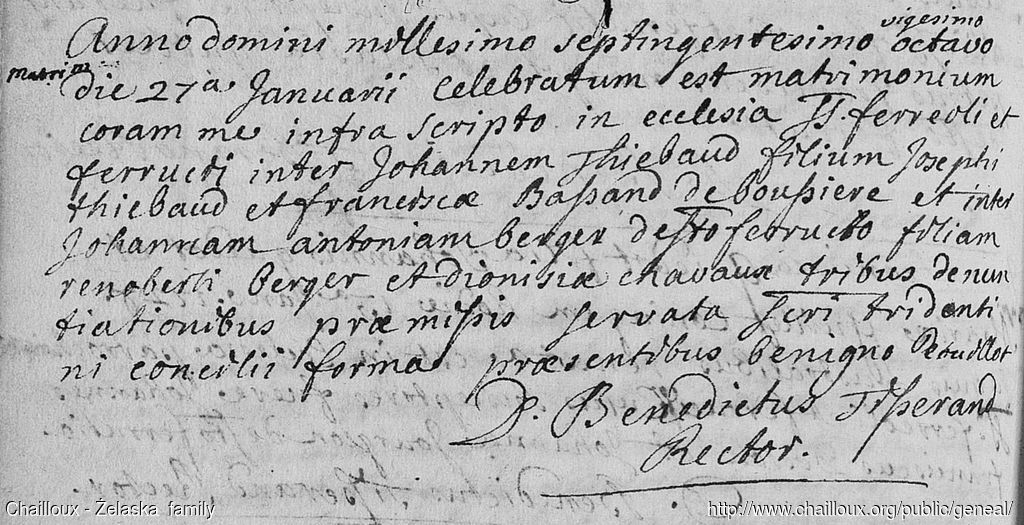 Anno domini millesimo septingentesimo vigesimo octavo
Matrim
die 27a Januarii celebratum est matrimonium
coram me infra scripto in ecclesia SS. ferreoli et
ferructi inter Johannem Thiebaud filium Josephi
thiebaud et franciscæ Bassand de boussiere et inter
Johannam antoniam berger de Sto ferructo filiam
renoberti berger et dionisiæ chavaux tribus denun
tiationibus præmissis servata Scri tridenti
ni concilii forma præsentibus benigno Petuillot
P. Benedictus Tisserand
Rector.
Chailloux - Żelaska family
http://www.chailloux.org/public/geneal/